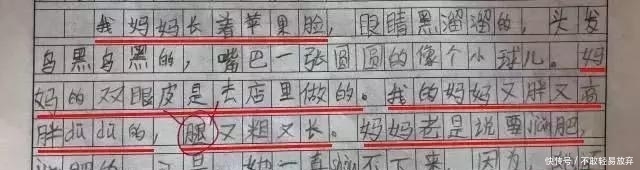 我妈妈长着苹果脸，眼睛黑溜溜的，头发
乌黑乌黑的，嘴巴一张圆圆的像个小球儿。妈
妈的双眼皮是去店里做的。我的妈妈又胖又高
胖dū dū的，腿又粗又长。妈妈老是说要jiǎn肥，
快传号 / 不敢轻易放弃